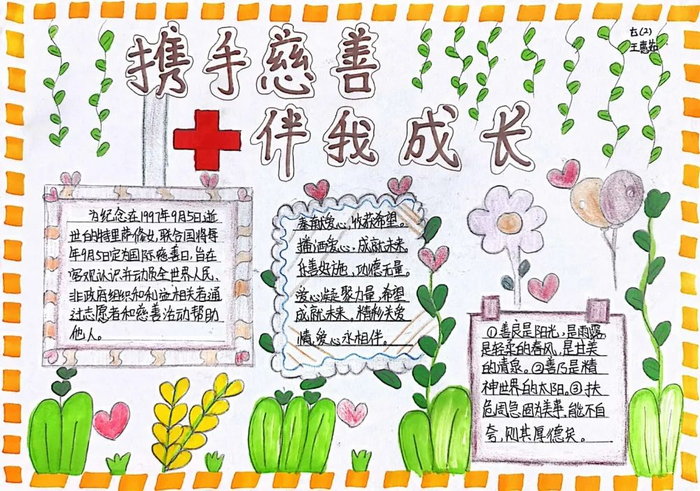 携手慈善
伴我成长
(2)
王
为纪念在1997年9月5日逝
世的特里萨修女,联合国将每
年9月5日定为国际慈善日,旨在
客观认识并动员全世界人民,
非政府组织和利益相关者通
过志愿者和慈善活动帮助
他人。
奉献爱心,收获希望。
播洒爱心,成就未来
乐善好施,功德无量。
爱心凝聚力量,希望
成就未来,精彩关爱
情,爱心永相伴。
①善良是阳光,是雨露,
是轻柔的春风,是甘美
的清泉。②善乃是精
神世界的太阳。③扶
危周急固为美事,能不自
夸,则其厚德矣。